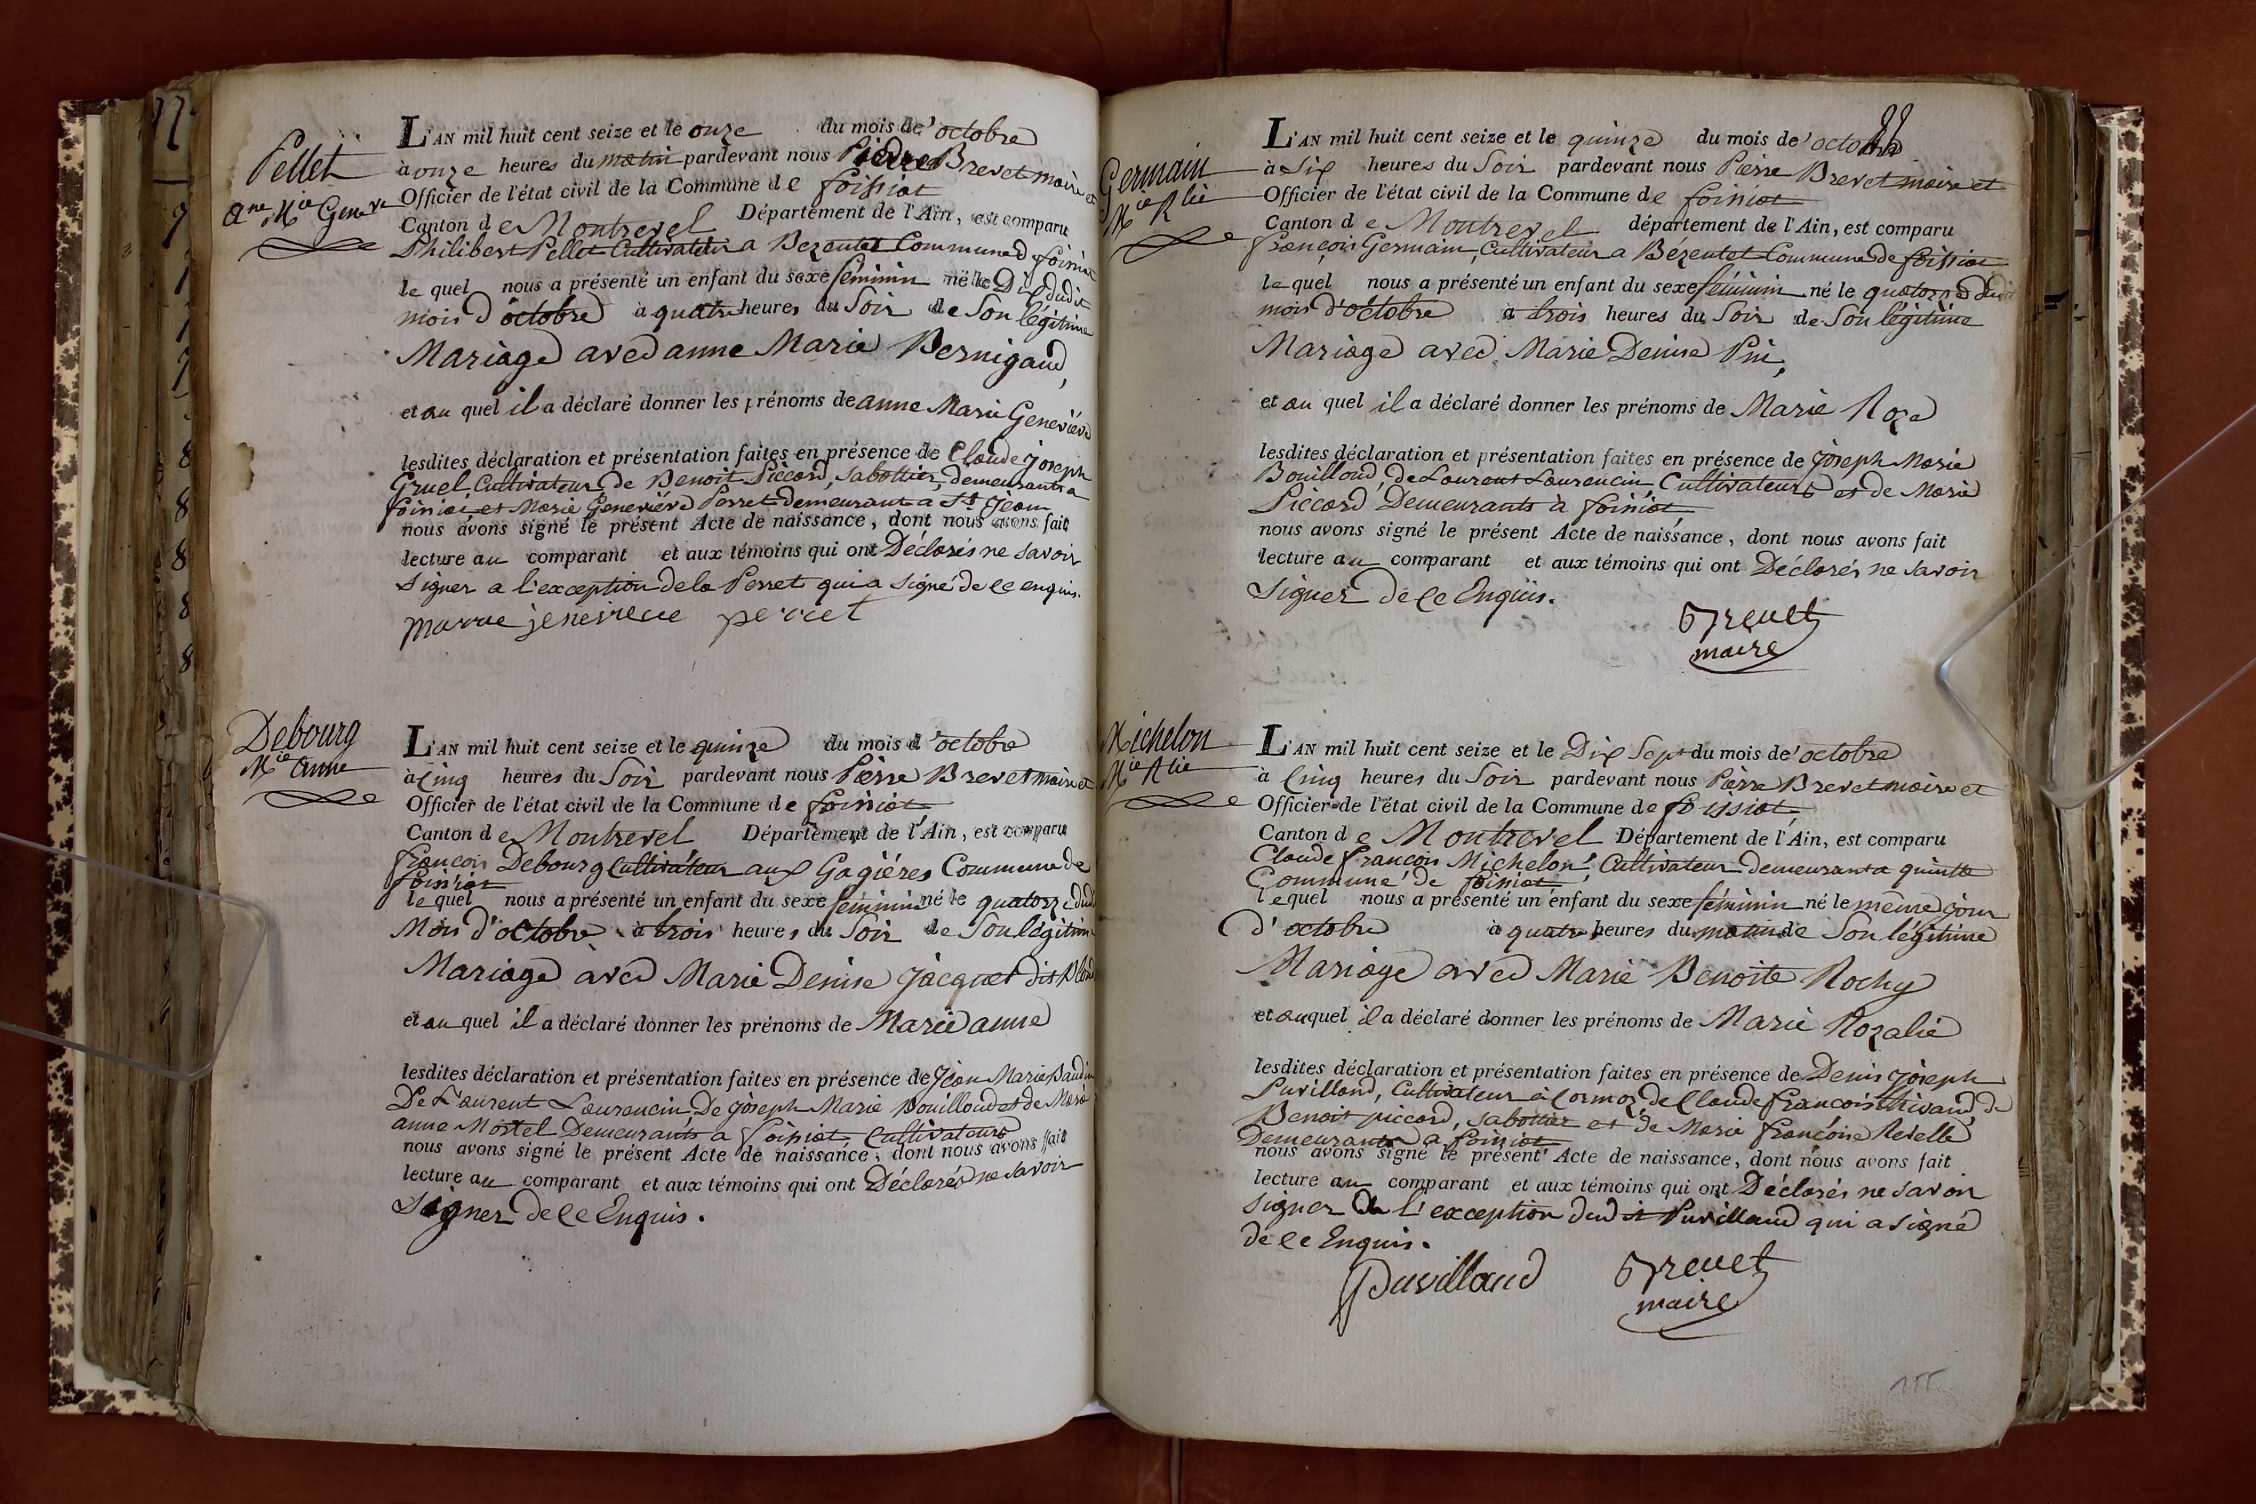 Pellet
ane Mie Geneve
L'AN mil huit cent seize et le onze du mois de 'octobre
à onze heures du matin pardevant nous Pierre Brevet maire et
Officier de l'état civil de la Commune de foissiat
Canton de Montrevel Département de l'Ain, est comparu
Philibert Pellet Cultivateur a Bezentet Commune d foissiat
le quel nous a présenté un enfant du sexe féminin né le Dix dudit
mois d'octobre à quatre heures du Soir de Son légitime
Mariage avec anne Marie Bernigaud,
et au quel il a déclaré donner les prénoms de anne Marie Geneviève
lesdites déclaration et présentation faites en présence de Claude joseph
Gruel, Cultivateur, de Benoit Piccard, Sabottier, demeurants a
foissiat et Marie Geneviève Perret demeurant a St. Jean
nous avons signé le présent Acte de naissance, dont nous avons fait
lecture au comparant et aux témoins qui ont Déclarés ne savoir
signer a l'exception de la Perret qui a signé de ce enquis.
marie jenevieve perret
Debourg
Mie anne
L'AN mil huit cent seize et le quinze du mois d 'octobre
à Cinq heures du Soir pardevant nous Pierre Brevet maire et
Officier de l'état civil de la Commune de foissiat
Canton de Montrevel Département de l'Ain, est comparu
françois Debourg Cultivateur aux Gagières Commune de
foissiat
le quel nous a présenté un enfant du sexe féminin né le quatorze dudit
Mois d'octobre à trois heures du Soir de Son légitime
Mariage avec Marie Denise jacquet dit Blond
et au quel il a déclaré donner les prénoms de Marie anne
lesdites déclaration et présentation faites en présence de Jean Marie Baudin
De Laurent Laurencin, De joseph Marie Bouilloud et de Marie
anne Mortel Demeurants a foissiat, Cultivateurs
nous avons signé le présent Acte de naissance, dont nous avons fait
lecture au comparant et aux témoins qui ont Déclarés ne savoir
Signer de ce Enquis.
22
Germain
Mie Rlie
L'AN mil huit cent seize et le quinze du mois de 'octobre
à Six heures du Soir pardevant nous Pierre Brevet maire et
Officier de l'état civil de la Commune de foissiat
Canton de Montrevel département de l'Ain, est comparu
françois Germain, Cultivateur a Bézentet Commune de foissiat
le quel nous a présenté un enfant du sexe féminin né le quatorze dudit
mois d'octobre a trois heures du Soir de Son légitime
Mariage avec Marie Denise Pin,
et au quel il a déclaré donner les prénoms de Marie Roze
lesdites déclaration et présentation faites en présence de joseph Marie
Bouilloud, de Laurent Laurencin, Cultivateurs et de Marie
Piccard Demeurants à foissiat
nous avons signé le présent Acte de naissance, dont nous avons fait
lecture au comparant et aux témoins qui ont Déclarés ne savoir
Signer de ce Enquis.
Brevet
maire
Michelon
Mie Rlie
L'AN mil huit cent seize et le Dix Sept du mois de 'octobre
à Cinq heures du Soir pardevant nous Pierre Brevet maire et
Officier de l'état civil de la Commune de foissiat
Canton de Montrevel Département de l'Ain, est comparu
Claude françois Michelon, Cultivateur Demeurant a quintte
Commune de foissiat
le quel nous a présenté un enfant du sexe féminin né le même jour
d'octobre à quatre heures du matin de Son légitime
Mariage avec Marie Benoite Rochy
et auquel il a déclaré donner les prénoms de Marie Rozalie
lesdites déclaration et présentation faites en présence de Denis joseph
Puvilland, Cultivateur à Cormoz, de Claude françois thivaud, de
Benoit piccard, sabottier et de Marie françoise Revelle
Demeurants a foissiat
nous avons signé le présent Acte de naissance, dont nous avons fait
lecture au comparant et aux témoins qui ont Déclarés ne savoir
signer a l'exception dudit Puvilland qui a signé
de ce Enquis.
Puvilland Brevet
maire
155